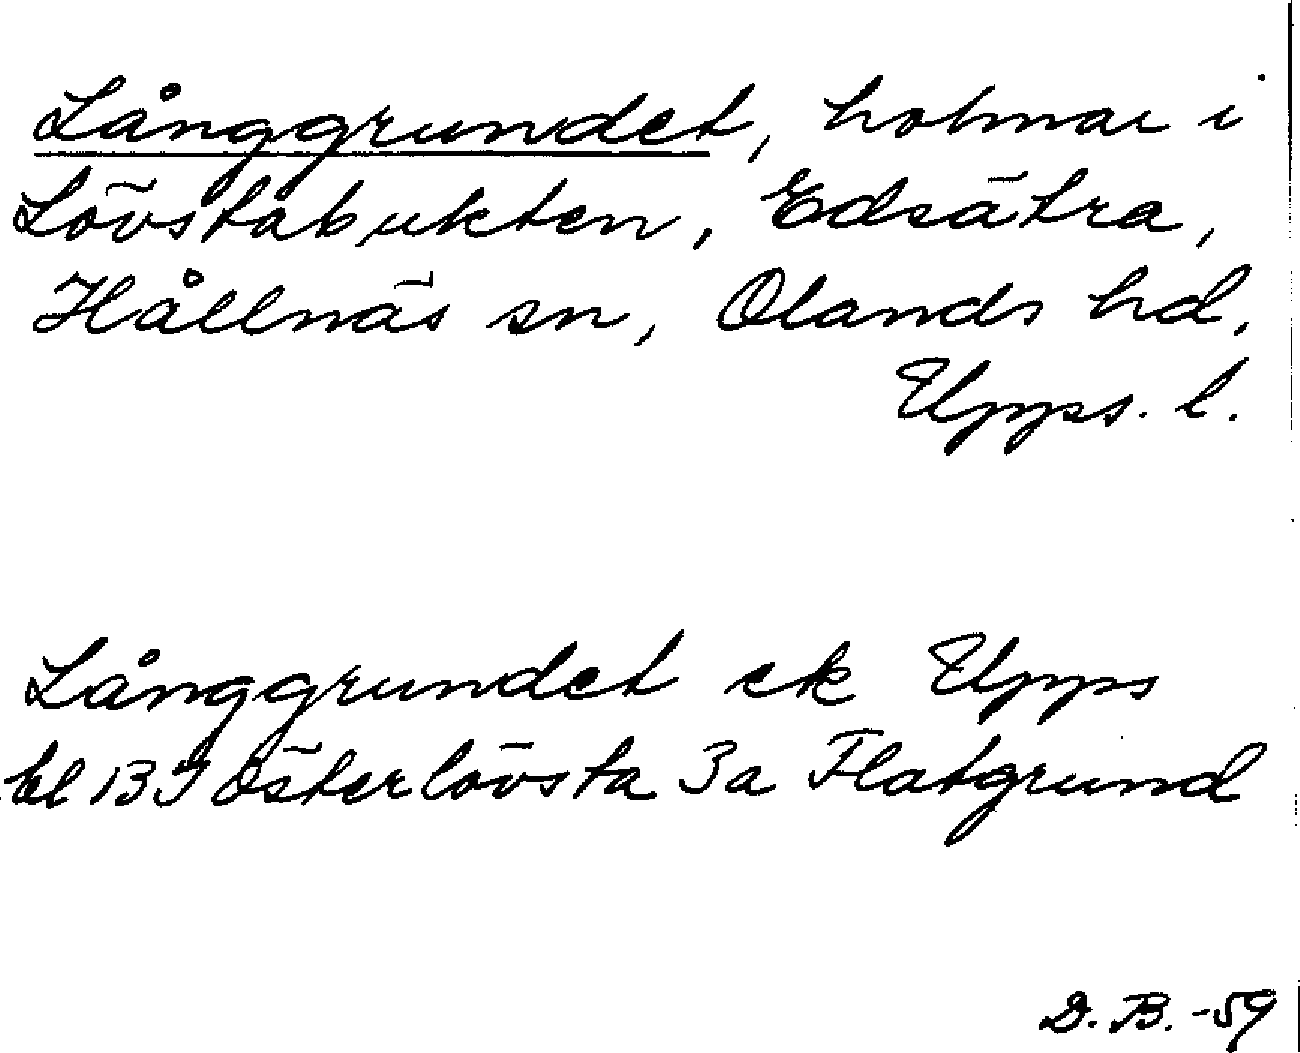 Långgrundet, holmar i
Lövstabukten, Edsätra,
Hållnäs sn, Olands hd,
Upps. l.
Långgrundet ek Upps
bl 13 J Österlövsta 3a Flatgrund
D. B. -59